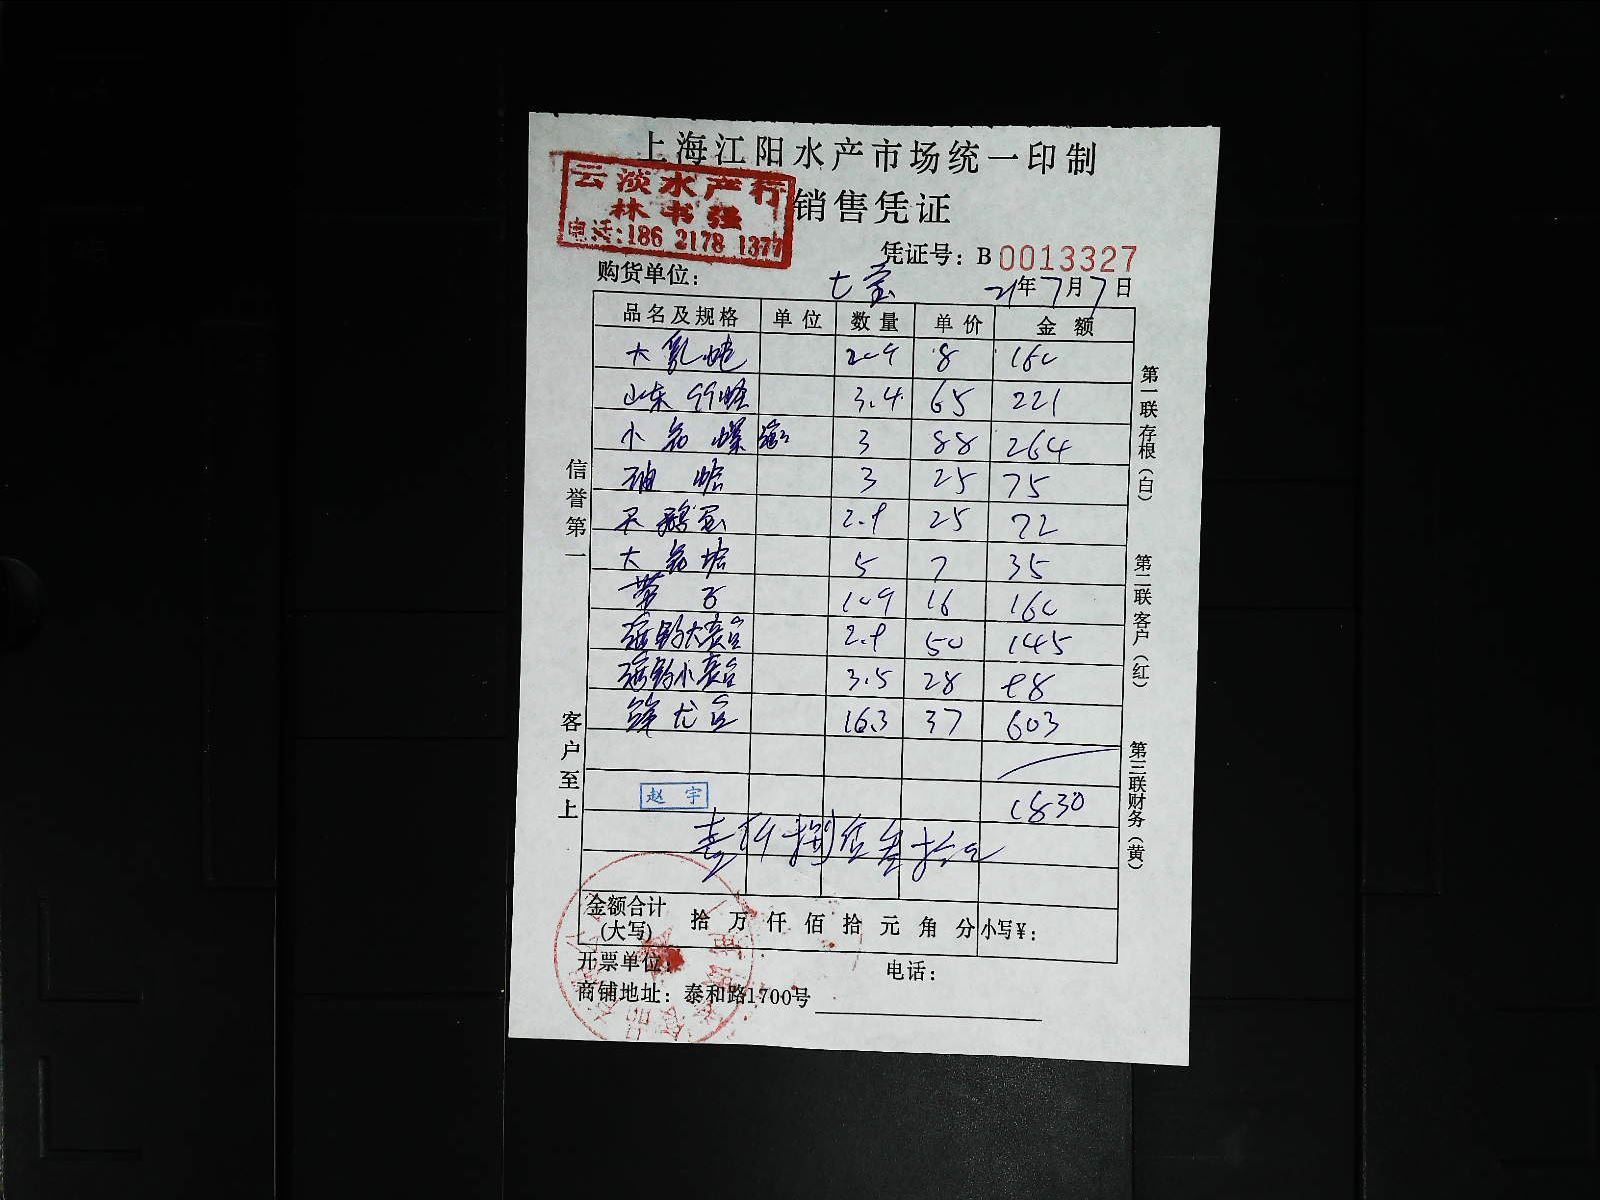 上海江阳水产市场统一印制
云淡水产行
林书强
电话:186 2178 1377
销售凭证
凭证号: B 0013327
购货单位: 七宝 21年7月7日
品名及规格 单位 数量 单价 金额
大 8 160
山东 3.4 65 221
小 螺 3 88 264
油蛤 3 25 75
天鹅蛋 2.9 25 72
大 5 7 35
带子 16 160
大 2.9 50 145
小 3.5 28 98
龙 16.3 37 603
1830
赵宇
壹仟捌佰叁拾元
金额合计
(大写) 拾 万 仟 佰 拾 元 角 分 小写¥:
开票单位: 电话:
商铺地址: 泰和路1700号
信誉第一
客户至上
第一联存根(白)
第二联客户(红)
第三联财务(黄)